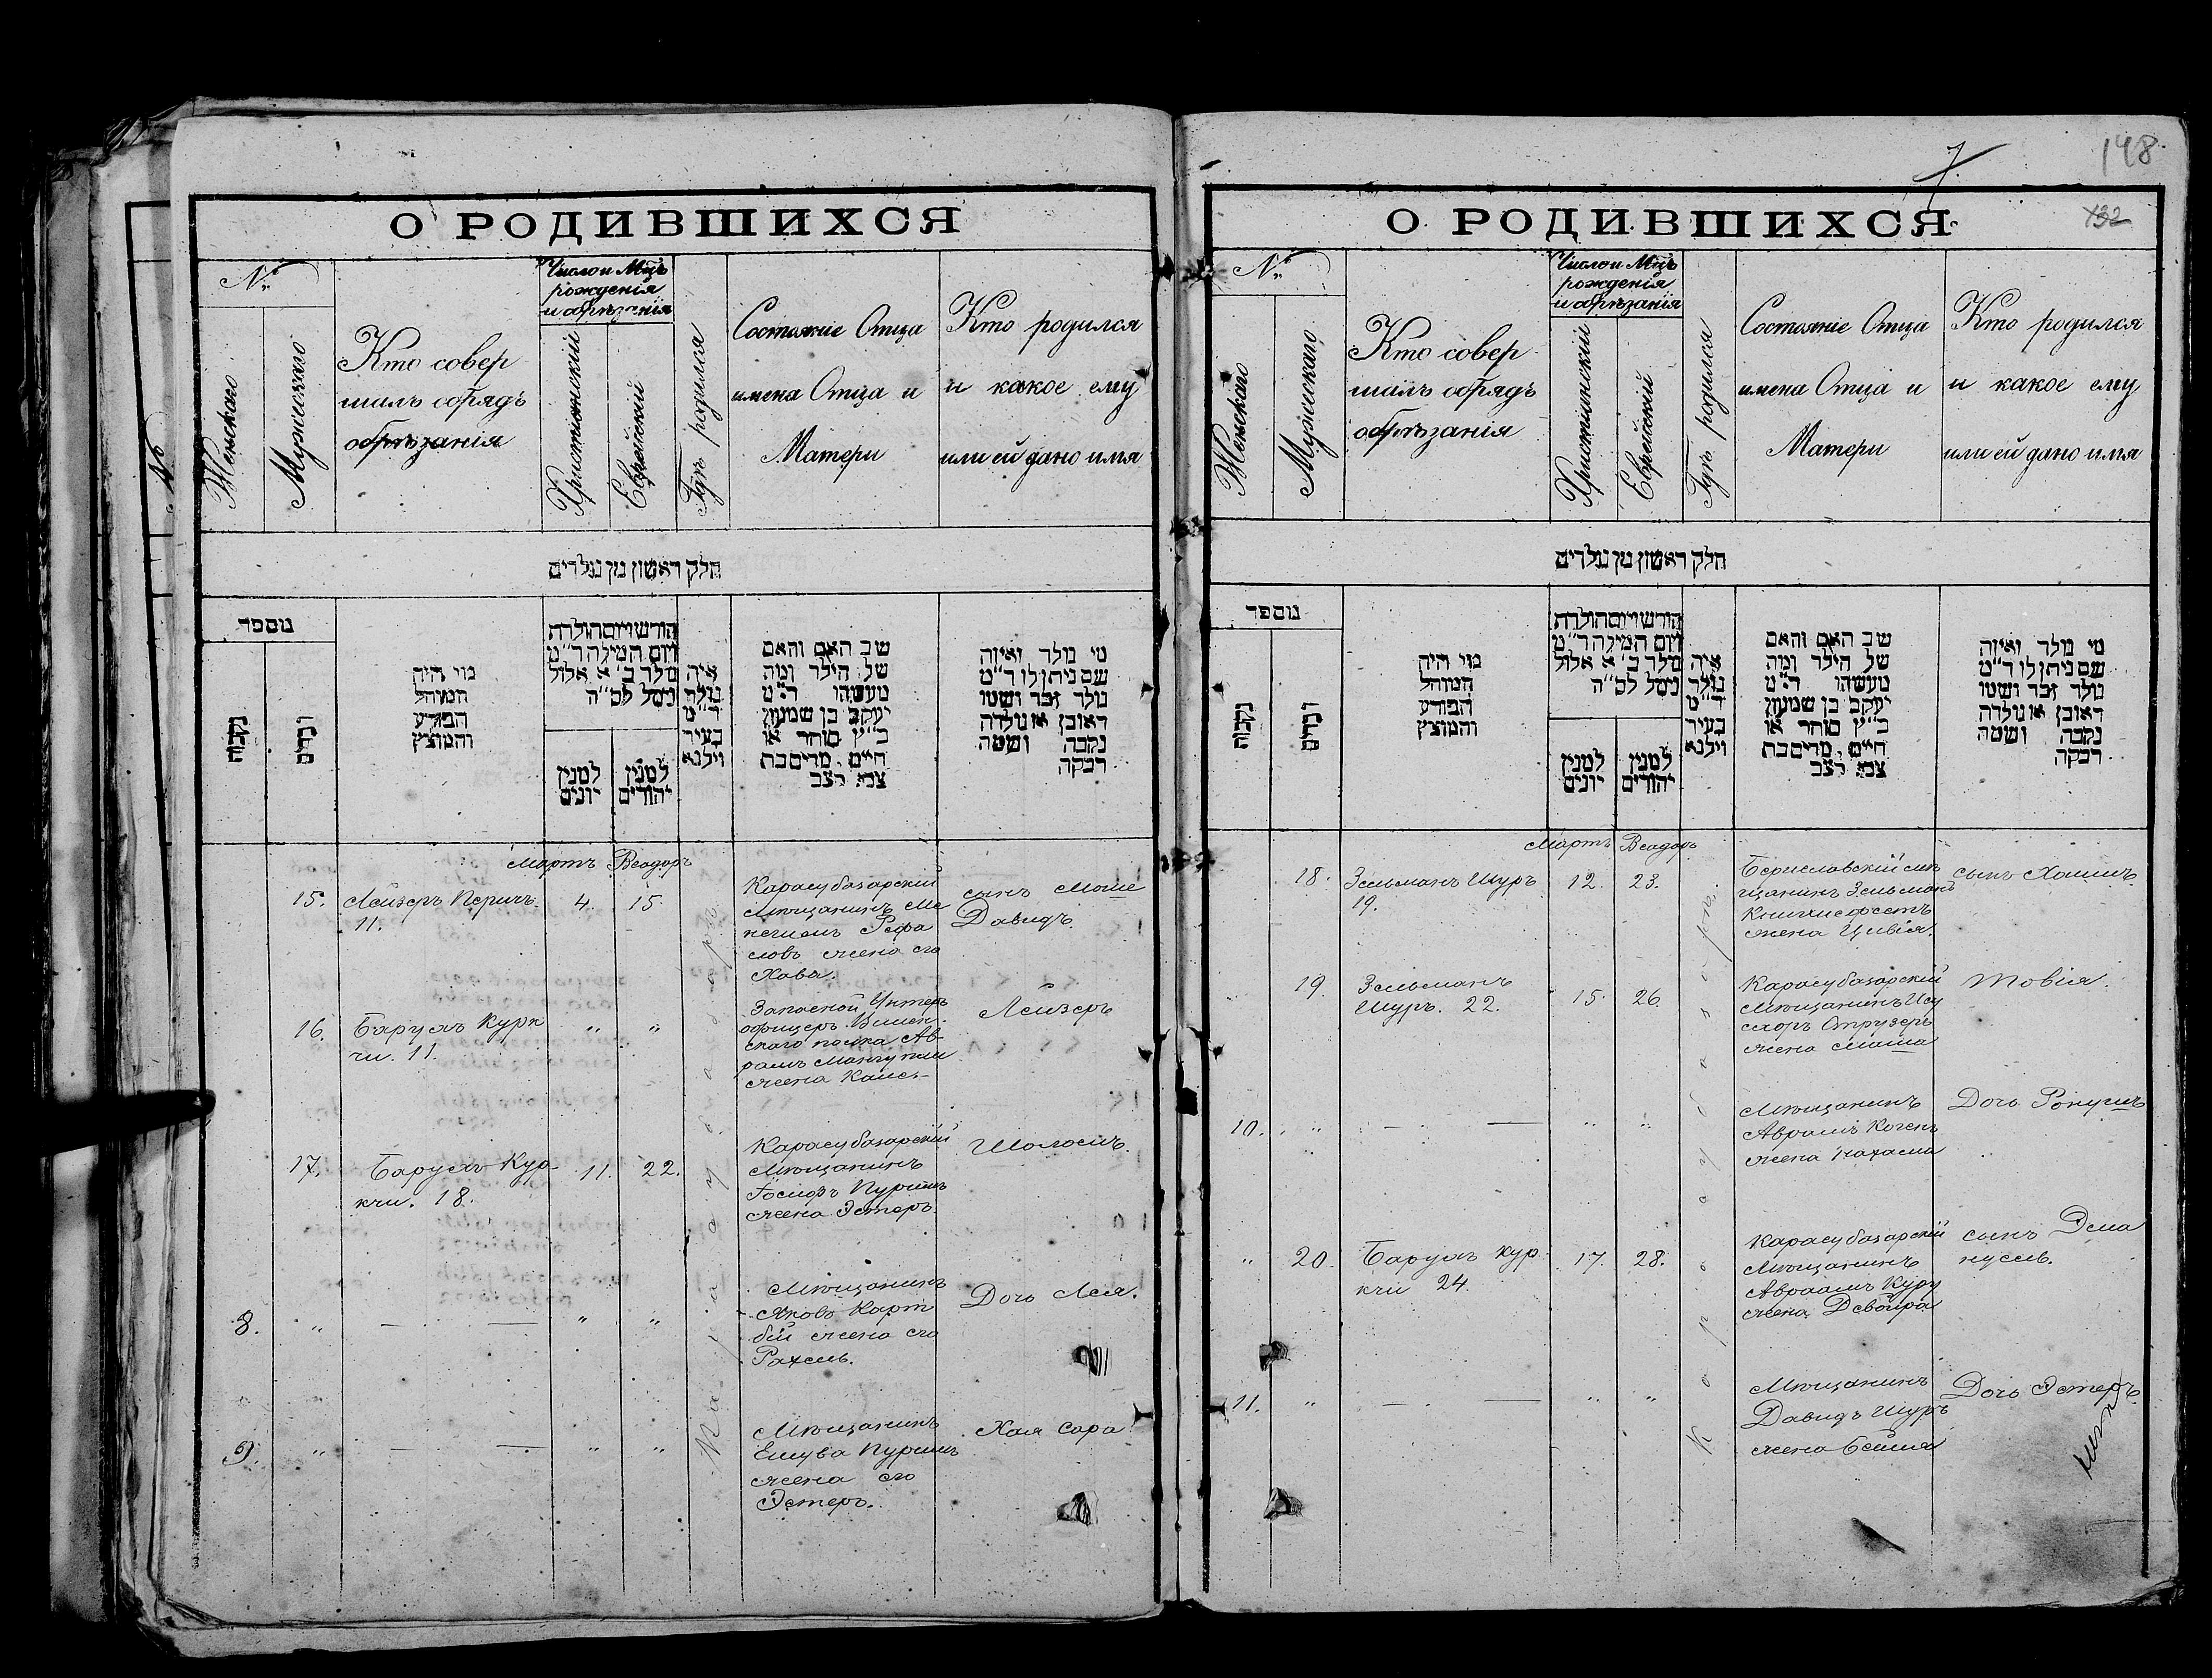 О РОДИВШИХСЯ
№
Женскаго
Мужескаго
Кто совер
шалъ обрядъ
обрѣзанія
Число и Мцъ
рожденія
и обрѣзанія
Христіанскій
Еврейскій
Гдѣ родился
Состояніе Отца
имена Отца и
Матери
Кто родился
и какое ему
или ей дано имя
חלק ראשון מן נולדים
מספר
נקבות
זכרים
מי היה
המוהל
הפורע
והמוצץ
חודש ויום הולדת
ויום המילה ד״מ
נולד ב׳ א אלול
נימל לס״ה
למנין
יונים
למנין
יהודים
איה
נולד
ד״מ
בעיר
וילנא
שב האם והאם
של הילד ומה
מעשהו ד״מ
יעקב בן שמעון
כ״ץ סוחר או
חיים מרים בת
צבי
מי נולד ואיזה
שם ניתן לו ד״מ
נולד זכר ושמו
ראובן או נולדה
נקבה ושמה
רבקה
Мартъ Веадоръ
15. Лейзеръ Перичъ. 4. 15.
11.
Карасубазарскій
Мѣщанинъ Ме
нечемъ Рефа
ловъ жена его
Хава.
сынъ Моше
Давидъ.
16. Барухъ Курк
чи. 11.
" "
Запасной Унтеръ
офицеръ
скаго полка Ав-
рамъ Мангупли
жена
Лейзеръ
17. Барухъ Кур-
кчи. 18.
11. 22.
Карасубазарскій
Мѣщанинъ
Іосифъ Пуримъ
жена Эстеръ.
Шоломъ.
8. " — — " "
Мѣщанинъ
Яковъ Карт
бій жена его
Рахель.
Дочь Лея.
9. " — — " "
Мѣщанинъ
Ешува Пуримъ
жена его
Эстеръ.
Хая Сора
Карасубазаръ
7
148
132
О РОДИВШИХСЯ
№
Женскаго
Мужескаго
Кто совер
шалъ обрядъ
обрѣзанія
Число и Мцъ
рожденія
и обрѣзанія
Христіанскій
Еврейскій
Гдѣ родился
Состояніе Отца
имена Отца и
Матери
Кто родился
и какое ему
или ей дано имя
חלק ראשון מן נולדים
מספר
נקבות
זכרים
מי היה
המוהל
הפורע
והמוצץ
חודש ויום הולדת
ויום המילה ד״מ
נולד ב׳ א אלול
נימל לס״ה
למנין
יונים
למנין
יהודים
איה
נולד
ד״מ
בעיר
וילנא
שב האם והאם
של הילד ומה
מעשהו ד״מ
יעקב בן שמעון
כ״ץ סוחר או
חיים מרים בת
צבי
מי נולד ואיזה
שם ניתן לו ד״מ
נולד זכר ושמו
ראובן או נולדה
נקבה ושמה
רבקה
Мартъ Веадоръ
18. Зельманъ Шуръ 12. 23.
19.
Бериславскій мѣ
щанинъ Зельманъ
жена Цивія.
сынъ Хаимъ.
19. Зельманъ
Шуръ. 22.
15. 26.
Карасубазарскій
Мѣщанинъ Иcу
схоръ Отрузеръ
жена Маша
Товія.
10. " — — " "
Мѣщанинъ
Аврамъ Когенъ
жена Нахама
Дочь
" 20. Барухъ Кур
кчи 24
17. 28.
Карасубазарскій
Мѣщанинъ
Авраамъ Куру
жена Двойра
сынъ Эма
нуель.
11. " — — " "
Мѣщанинъ
Давидъ Шуръ
жена
Дочь Эстеръ
Карасубазаръ